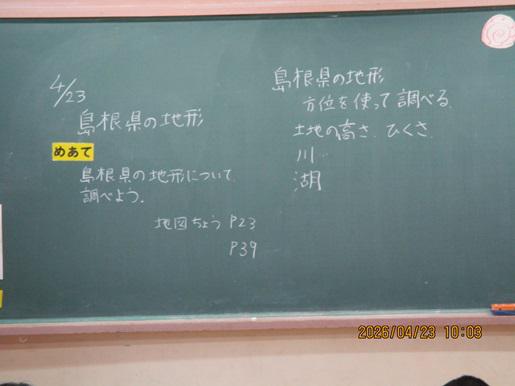 4/23
島根県の地形
めあて
島根県の地形について
調べよう。
地図ちょう P23
P39
島根県の地形
方位を使って調べる
土地の高さ、ひくさ
川
湖
2026/04/23 10:03